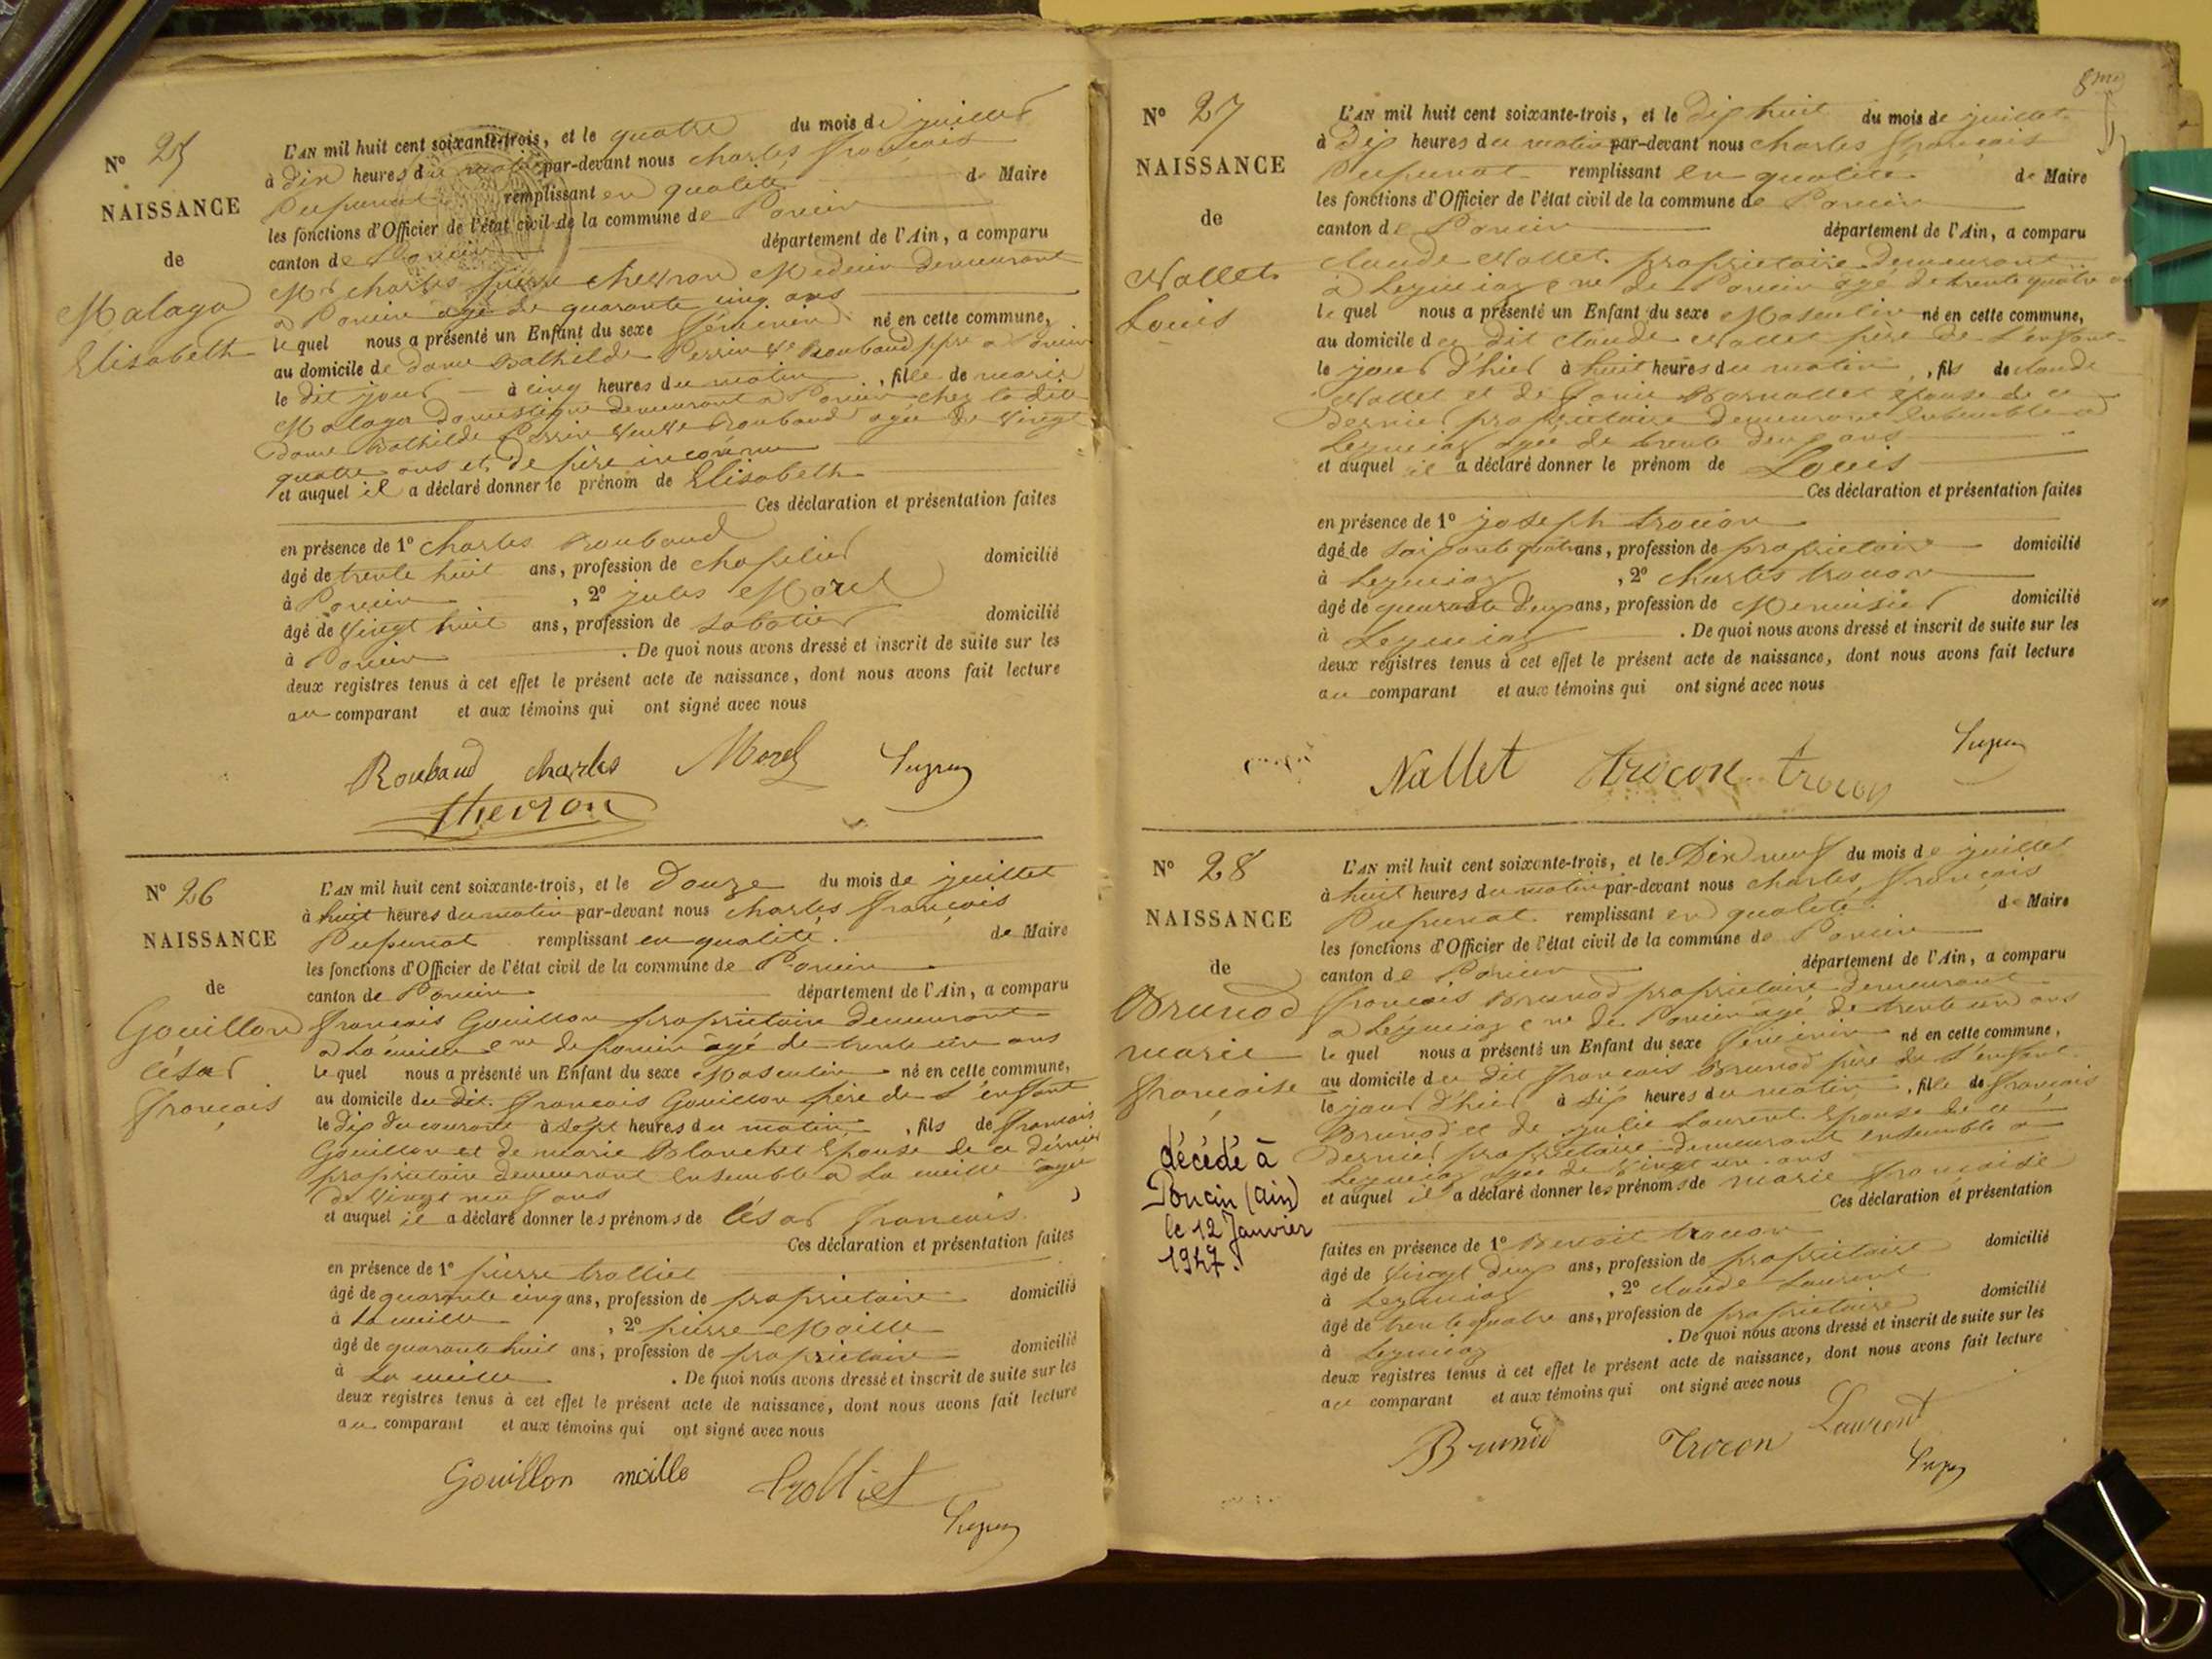 N° 25
NAISSANCE
de
Malaga
Elisabeth
L'AN mil huit cent soixante-trois, et le quatre du mois de juillet
à dix heures du matin par-devant nous charles françois
remplissant en qualité de Maire
les fonctions d'Officier de l'état civil de la commune de Poncin
canton de Poncin département de l'Ain, a comparu
Mr charles pierre chevron Medecin demeurant
a Poncin agé de quarante cinq ans
lequel nous a présenté un Enfant du sexe féminin né en cette commune,
au domicile de dame Bathilde Perrin Ve Roubaud ppre a Poncin
le dit jour à cinq heures du matin, fille de marie
Malaga Domestique demeurant a Poncin chez la dite
dame Bathilde Perrin veuve Roubaud agée de vingt
quatre ans et de père inconnu
et auquel il a déclaré donner le prénom de Elisabeth
Ces déclaration et présentation faites
en présence de 1° charles Roubaud
âgé de trente huit ans, profession de chapelier domicilié
à Poncin, 2° jules Morel
âgé de vingt huit ans, profession de sabotier domicilié
à Poncin. De quoi nous avons dressé et inscrit de suite sur les
deux registres tenus à cet effet le présent acte de naissance, dont nous avons fait lecture
au comparant et aux témoins qui ont signé avec nous
Roubaud charles Morel
Chevron
N° 26
NAISSANCE
de
Gouillon
césar
françois
L'AN mil huit cent soixante-trois, et le Douze du mois de juillet
à huit heures du matin par-devant nous charles françois
remplissant en qualité de Maire
les fonctions d'Officier de l'état civil de la commune de Poncin
canton de Poncin département de l'Ain, a comparu
françois Gouillon propriétaire demeurant
a La cueille cne de poncin agé de trente un ans
lequel nous a présenté un Enfant du sexe Masculin né en cette commune,
au domicile du dit françois Gouillon père de l'enfant
le dix du courant à sept heures du matin, fils de françois
Gouillon et de marie Blanchet Epouse de ce dernier
propriétaire demeurant ensemble a La cueille agée
de vingt neuf ans
et auquel il a déclaré donner les prénoms de césar françois
Ces déclaration et présentation faites
en présence de 1° pierre trolliet
âgé de quarante cinq ans, profession de propriétaire domicilié
à La cueille, 2° pierre Maille
âgé de quarante huit ans, profession de propriétaire domicilié
à La cueille. De quoi nous avons dressé et inscrit de suite sur les
deux registres tenus à cet effet le présent acte de naissance, dont nous avons fait lecture
au comparant et aux témoins qui ont signé avec nous
Gouillon maille trolliet
8me
N° 27
NAISSANCE
de
Nallet
Louis
L'AN mil huit cent soixante-trois, et le dix huit du mois de juillet
à Dix heures du matin par-devant nous charles françois
remplissant en qualité de Maire
les fonctions d'Officier de l'état civil de la commune de Poncin
canton de Poncin département de l'Ain, a comparu
claude Nallet propriétaire demeurant
à Leymiaz cne de Poncin agé de trente quatre
lequel nous a présenté un Enfant du sexe Masculin né en cette commune,
au domicile du dit claude Nallet père de l'enfant
le jour d'hier à huit heures du matin, fils de claude
Nallet et de épouse de ce
dernier propriétaire demeurant ensemble a
Leymiaz agée de trente deux ans
et auquel il a déclaré donner le prénom de Louis
Ces déclaration et présentation faites
en présence de 1° joseph trocon
âgé de soixante quatre ans, profession de propriétaire domicilié
à Leymiaz, 2° charles trocon
âgé de quarante deux ans, profession de Menuisier domicilié
à Leymiaz. De quoi nous avons dressé et inscrit de suite sur les
deux registres tenus à cet effet le présent acte de naissance, dont nous avons fait lecture
au comparant et aux témoins qui ont signé avec nous
Nallet trocon trocon
N° 28
NAISSANCE
de
Brunod
marie
françoise
décédé à
Poncin (Ain)
le 12 Janvier
1947.
L'AN mil huit cent soixante-trois, et le Dix neuf du mois de juillet
à huit heures du matin par-devant nous charles françois
remplissant en qualité de Maire
les fonctions d'Officier de l'état civil de la commune de Poncin
canton de Poncin département de l'Ain, a comparu
françois Brunod propriétaire demeurant
a Leymiaz cne de Poncin agé de trente un ans
lequel nous a présenté un Enfant du sexe féminin né en cette commune,
au domicile du dit françois Brunod père de l'enfant
le jour d'hier à six heures du matin, fille de françois
Brunod et de julie Laurent Epouse de ce
dernier propriétaire demeurant ensemble a
Leymiaz agée de vingt un ans
et auquel il a déclaré donner les prénoms de marie françoise
Ces déclaration et présentation
faites en présence de 1° Benoit trocon
âgé de vingt deux ans, profession de propriétaire domicilié
à Leymiaz, 2° claude Laurent
âgé de trente quatre ans, profession de propriétaire domicilié
à Leymiaz. De quoi nous avons dressé et inscrit de suite sur les
deux registres tenus à cet effet le présent acte de naissance, dont nous avons fait lecture
au comparant et aux témoins qui ont signé avec nous
Brunod Trocon Laurent